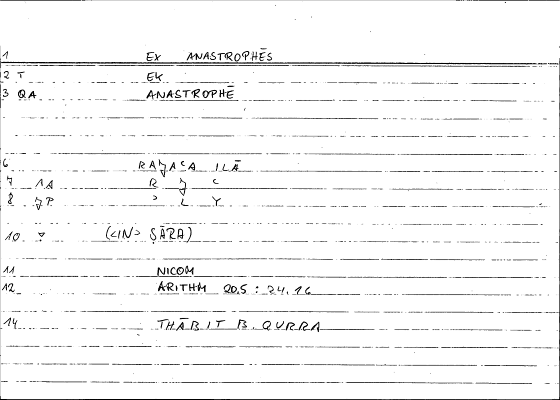 1 EX ANASTROPHĒS
2 T EK
3 QA ANASTROPHĒ
6 RAǮAʿA ILĀ
7 1A R Ǯ ʿ
8 ǮP ʾ L Y
10 (<IN> ṢĀRA)
11 NICOM
12 ARITHM 20.5 : 24.16
14 THĀBIT B. QURRA